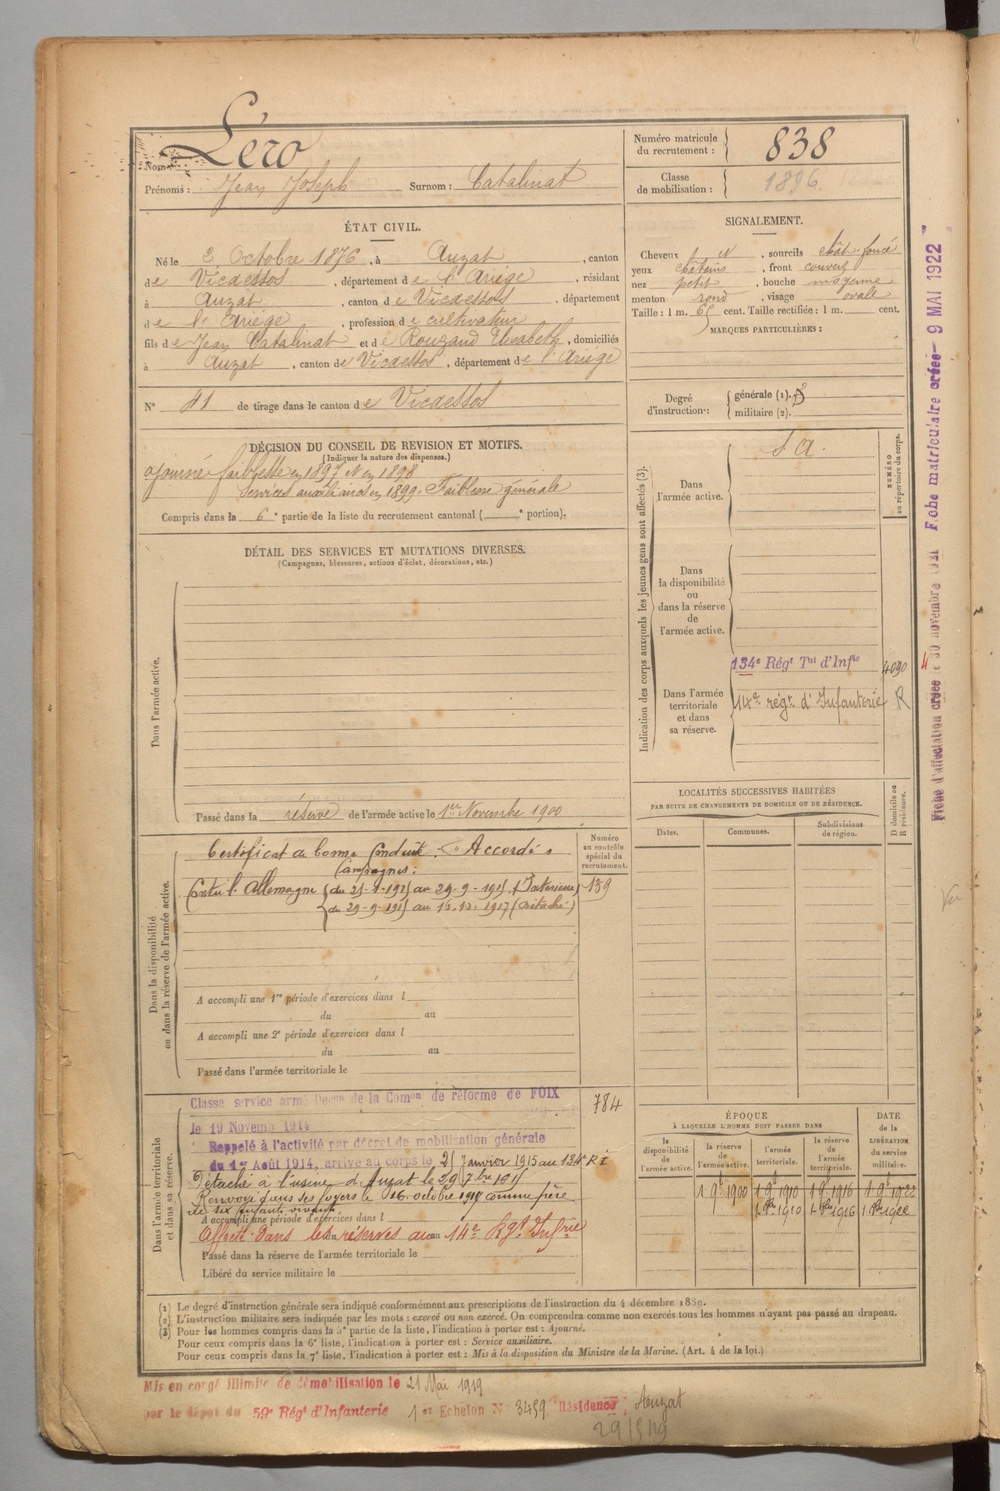 Nom : Léro
Prénoms : Jean Joseph Surnom : Catalinat
Numéro matricule du recrutement : 838
Classe de mobilisation : 1896
ÉTAT CIVIL.
Né le 2 Octobre 1876, à Auzat, canton
de Vicdessos, département de l'Ariège, résidant
à Auzat, canton de Vicdessos, département
de l'Ariège, profession de cultivateur
fils de Jean Catalinat et de Rouzaud Elisabeth, domiciliés
à Auzat, canton de Vicdessos, département de l'Ariège
N° 41 de tirage dans le canton de Vicdessos
SIGNALEMENT.
Cheveux et, sourcils chât. foncé
yeux chatains, front couvert
nez petit, bouche moyenne
menton rond, visage ovale
Taille : 1 m. 65 cent. Taille rectifiée : 1 m. cent.
MARQUES PARTICULIÈRES :
Degré d'instruction : générale (1). 3
militaire (2).
DÉCISION DU CONSEIL DE REVISION ET MOTIFS.
(Indiquer la nature des dispenses.)
ajourné faiblesse en 1897 et en 1898
Services auxiliaires en 1899. Faiblesse générale
Compris dans la 6e partie de la liste du recrutement cantonal ( e portion).
DÉTAIL DES SERVICES ET MUTATIONS DIVERSES.
(Campagnes, blessures, actions d'éclat, décorations, etc.)
Dans l'armée active.
Passé dans la réserve de l'armée active le 1er Novembre 1900
Indication des corps auxquels les jeunes gens sont affectés (3).
NUMÉRO au répertoire du corps.
Dans l'armée active.
S A.
Dans la disponibilité ou dans la réserve de l'armée active.
Dans l'armée territoriale et dans sa réserve.
134e Régt Tal d'Infie 4090
14e régt d'Infanterie R
Dans la disponibilité ou dans la réserve de l'armée active.
Numéro au contrôle spécial du recrutement.
139
Certificat de bonne Conduite. "Accordé"
Campagnes :
Contre l'Allemagne du 21-1-1915 au 29-9-1915 (Intérieur)
du 29-9-1915 au 16-10-1917 (Détaché)
A accompli une 1re période d'exercices dans l
du au
A accompli une 2e période d'exercices dans l
du au
Passé dans l'armée territoriale le
LOCALITÉS SUCCESSIVES HABITÉES
PAR SUITE DE CHANGEMENTS DE DOMICILE OU DE RÉSIDENCE.
Dates. Communes. Subdivisions de région. D domicile ou R résidence.
Dans l'armée territoriale et dans sa réserve.
Classé service armé Décon de la Comon de réforme de FOIX
le 19 Novemb 1914
784
Rappelé à l'activité par décret de mobilisation générale
du 1er Août 1914, arrivé au corps le 21 Janvier 1915 au 134e R I
Détaché à l'usine d'Auzat le 29 7bre 1915
Renvoyé dans ses foyers le 16 octobre 1917 comme père
de six enfants vivants.
A accompli une période d'exercices dans l
Affecté dans les réserves au 14e Rgt Infrie
du au
Passé dans la réserve de l'armée territoriale le
Libéré du service militaire le
ÉPOQUE
À LAQUELLE L'HOMME DOIT PASSER DANS
la disponibilité de l'armée active. la réserve de l'armée active. l'armée territoriale. la réserve de l'armée territoriale.
DATE de la LIBÉRATION du service militaire.
1 9e 1900 1 9e 1910 1 9e 1916 1 9e 1922
1 8bre 1910 1 8bre 1916 1 8bre 1922
(1) Le degré d'instruction générale sera indiqué conformément aux prescriptions de l'instruction du 4 décembre 1889.
(2) L'instruction militaire sera indiquée par les mots : exercé ou non exercé. On comprendra comme non exercés tous les hommes n'ayant pas passé au drapeau.
(3) Pour les hommes compris dans la 5e partie de la liste, l'indication à porter est : Ajourné.
Pour ceux compris dans la 6e liste, l'indication à porter est : Service auxiliaire.
Pour ceux compris dans la 7e liste, l'indication à porter est : Mis à la disposition du Ministre de la Marine. (Art. 4 de la loi.)
Mis en congé illimité de démobilisation le 21 Mai 1919
par le dépôt du 59e Régt d'Infanterie 1er Echelon N° 3459 Résidence : Auzat
29/5/19
Fiche d'affectation créée le 30 novembre 1921 Fiche matriculaire créée 9 MAI 1922
Vu